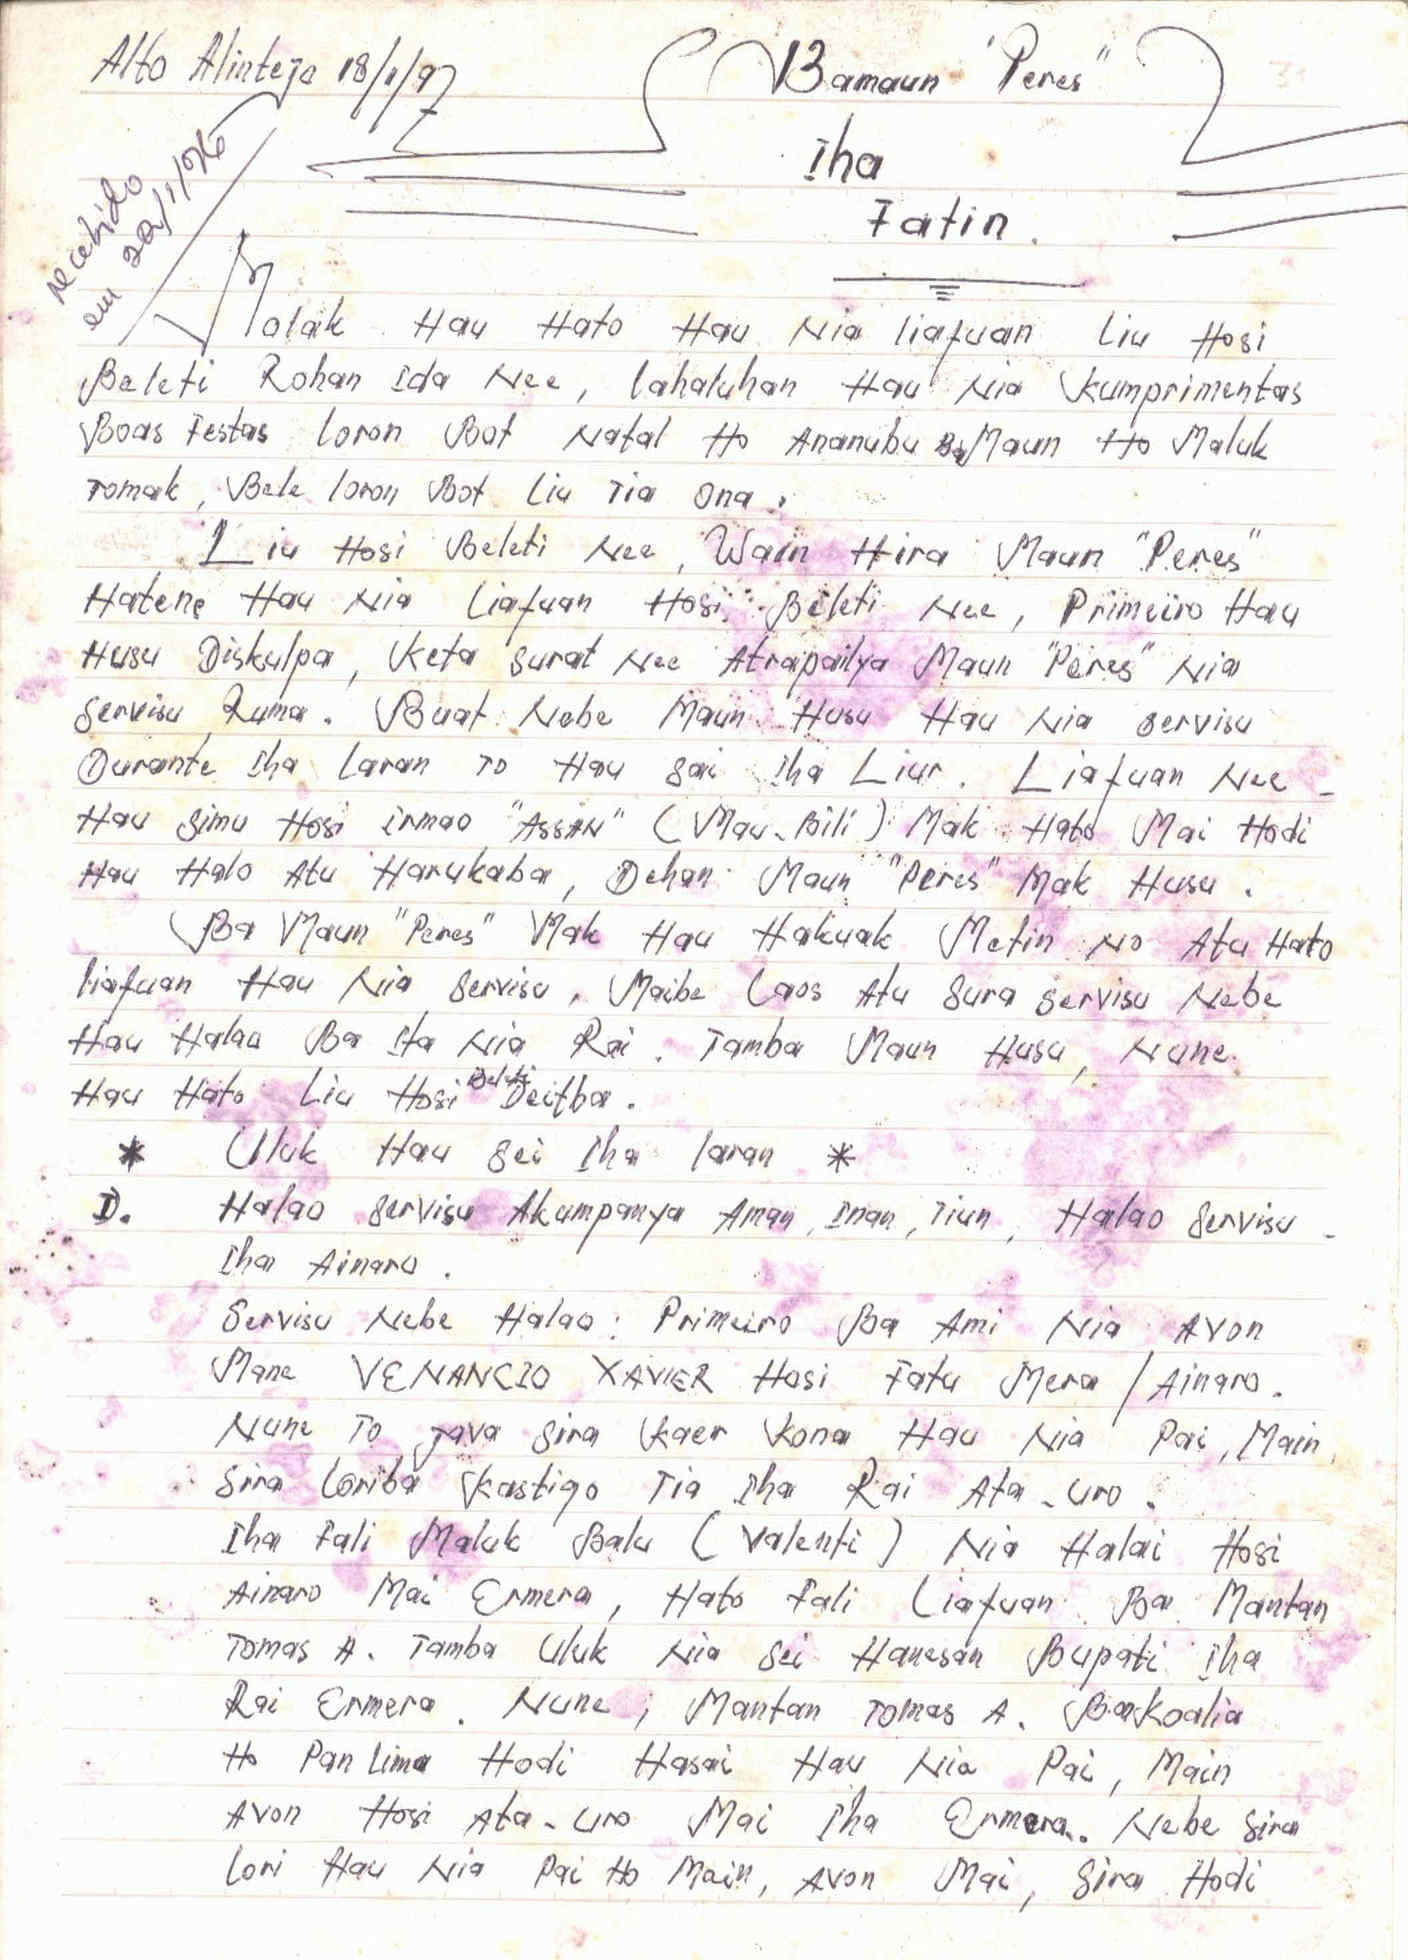 Alto Alinteja 18/1/97
Bamaun "Peres"
Iha
Fatin.
recebido
em 22/1/97
Molak Hau Hato Hau Nia liafuan Liu Hosi
Beleti Rohan Ida Nee, lahaluhan Hau Nia Kumprimentas
Boas Festas loron Bot Natal Ho Ananubu Ba Maun Ho Maluk
Tomak, Bele loron Bot Liu Tia Ona.
Liu Hosi Beleti Nee, Wain Hira Maun "Peres"
Hatene Hau Nia Liafuan Hosi Beleti Nee, Primeiro Hau
Husu Diskulpa, Keta Surat Nee Atrapailya Maun "Peres" Nia
Servisu Ruma. Buat Nebe Maun Husu Hau Nia servisu
Durante Iha laran To Hau Sai Iha Liur. Liafuan Nee -
Hau Simu Hosi irmao "ASSAN" (Mau-Bili) Mak Hato Mai Hodi
Hau Halo Atu Harukaba, Dehan Maun "Peres" Mak Husu.
Ba Maun "Peres" Mak Hau Hakuak Metin No Atu Hato
liafuan Hau Nia servisu, Maibe Laos Atu Sura servisu Nebe
Hau Halao Ba Ita Nia Rai. Tamba Maun Husu, Nune
Hau Hato Liu Hosi Beleti Deitba.
* Uluk Hau Sei Iha laran *
I. Halao servisu Akumpanya Aman, Inan, Tiun, Halao servisu -
Iha Ainaru.
Servisu Nebe Halao: Primeiro Ba Ami Nia Avon
Mane VENANCIO XAVIER Hosi Fatu Mera / Ainaro.
Nune To Java Sira Kaer Kona Hau Nia Pai, Main,
Sira loriba Kastigo Tia Iha Rai Ata-uro.
Iha Fali Maluk Balu (Valenti) Nia Halai Hosi
Ainaro Mai Ermera, Hato Fali Liafuan Ba Mantan
Tomas A. Tamba Uluk Nia Sei Hanesan Bupati Iha
Rai Ermera. Nune, Mantan Tomas A. BaKoalia
Ho Pan lima Hodi Hasai Hau Nia Pai, Main
Avon Hosi Ata-uro Mai Iha Ermera. Nebe Sira
lori Hau Nia Pai Ho Main, Avon Mai, Sira Hodi